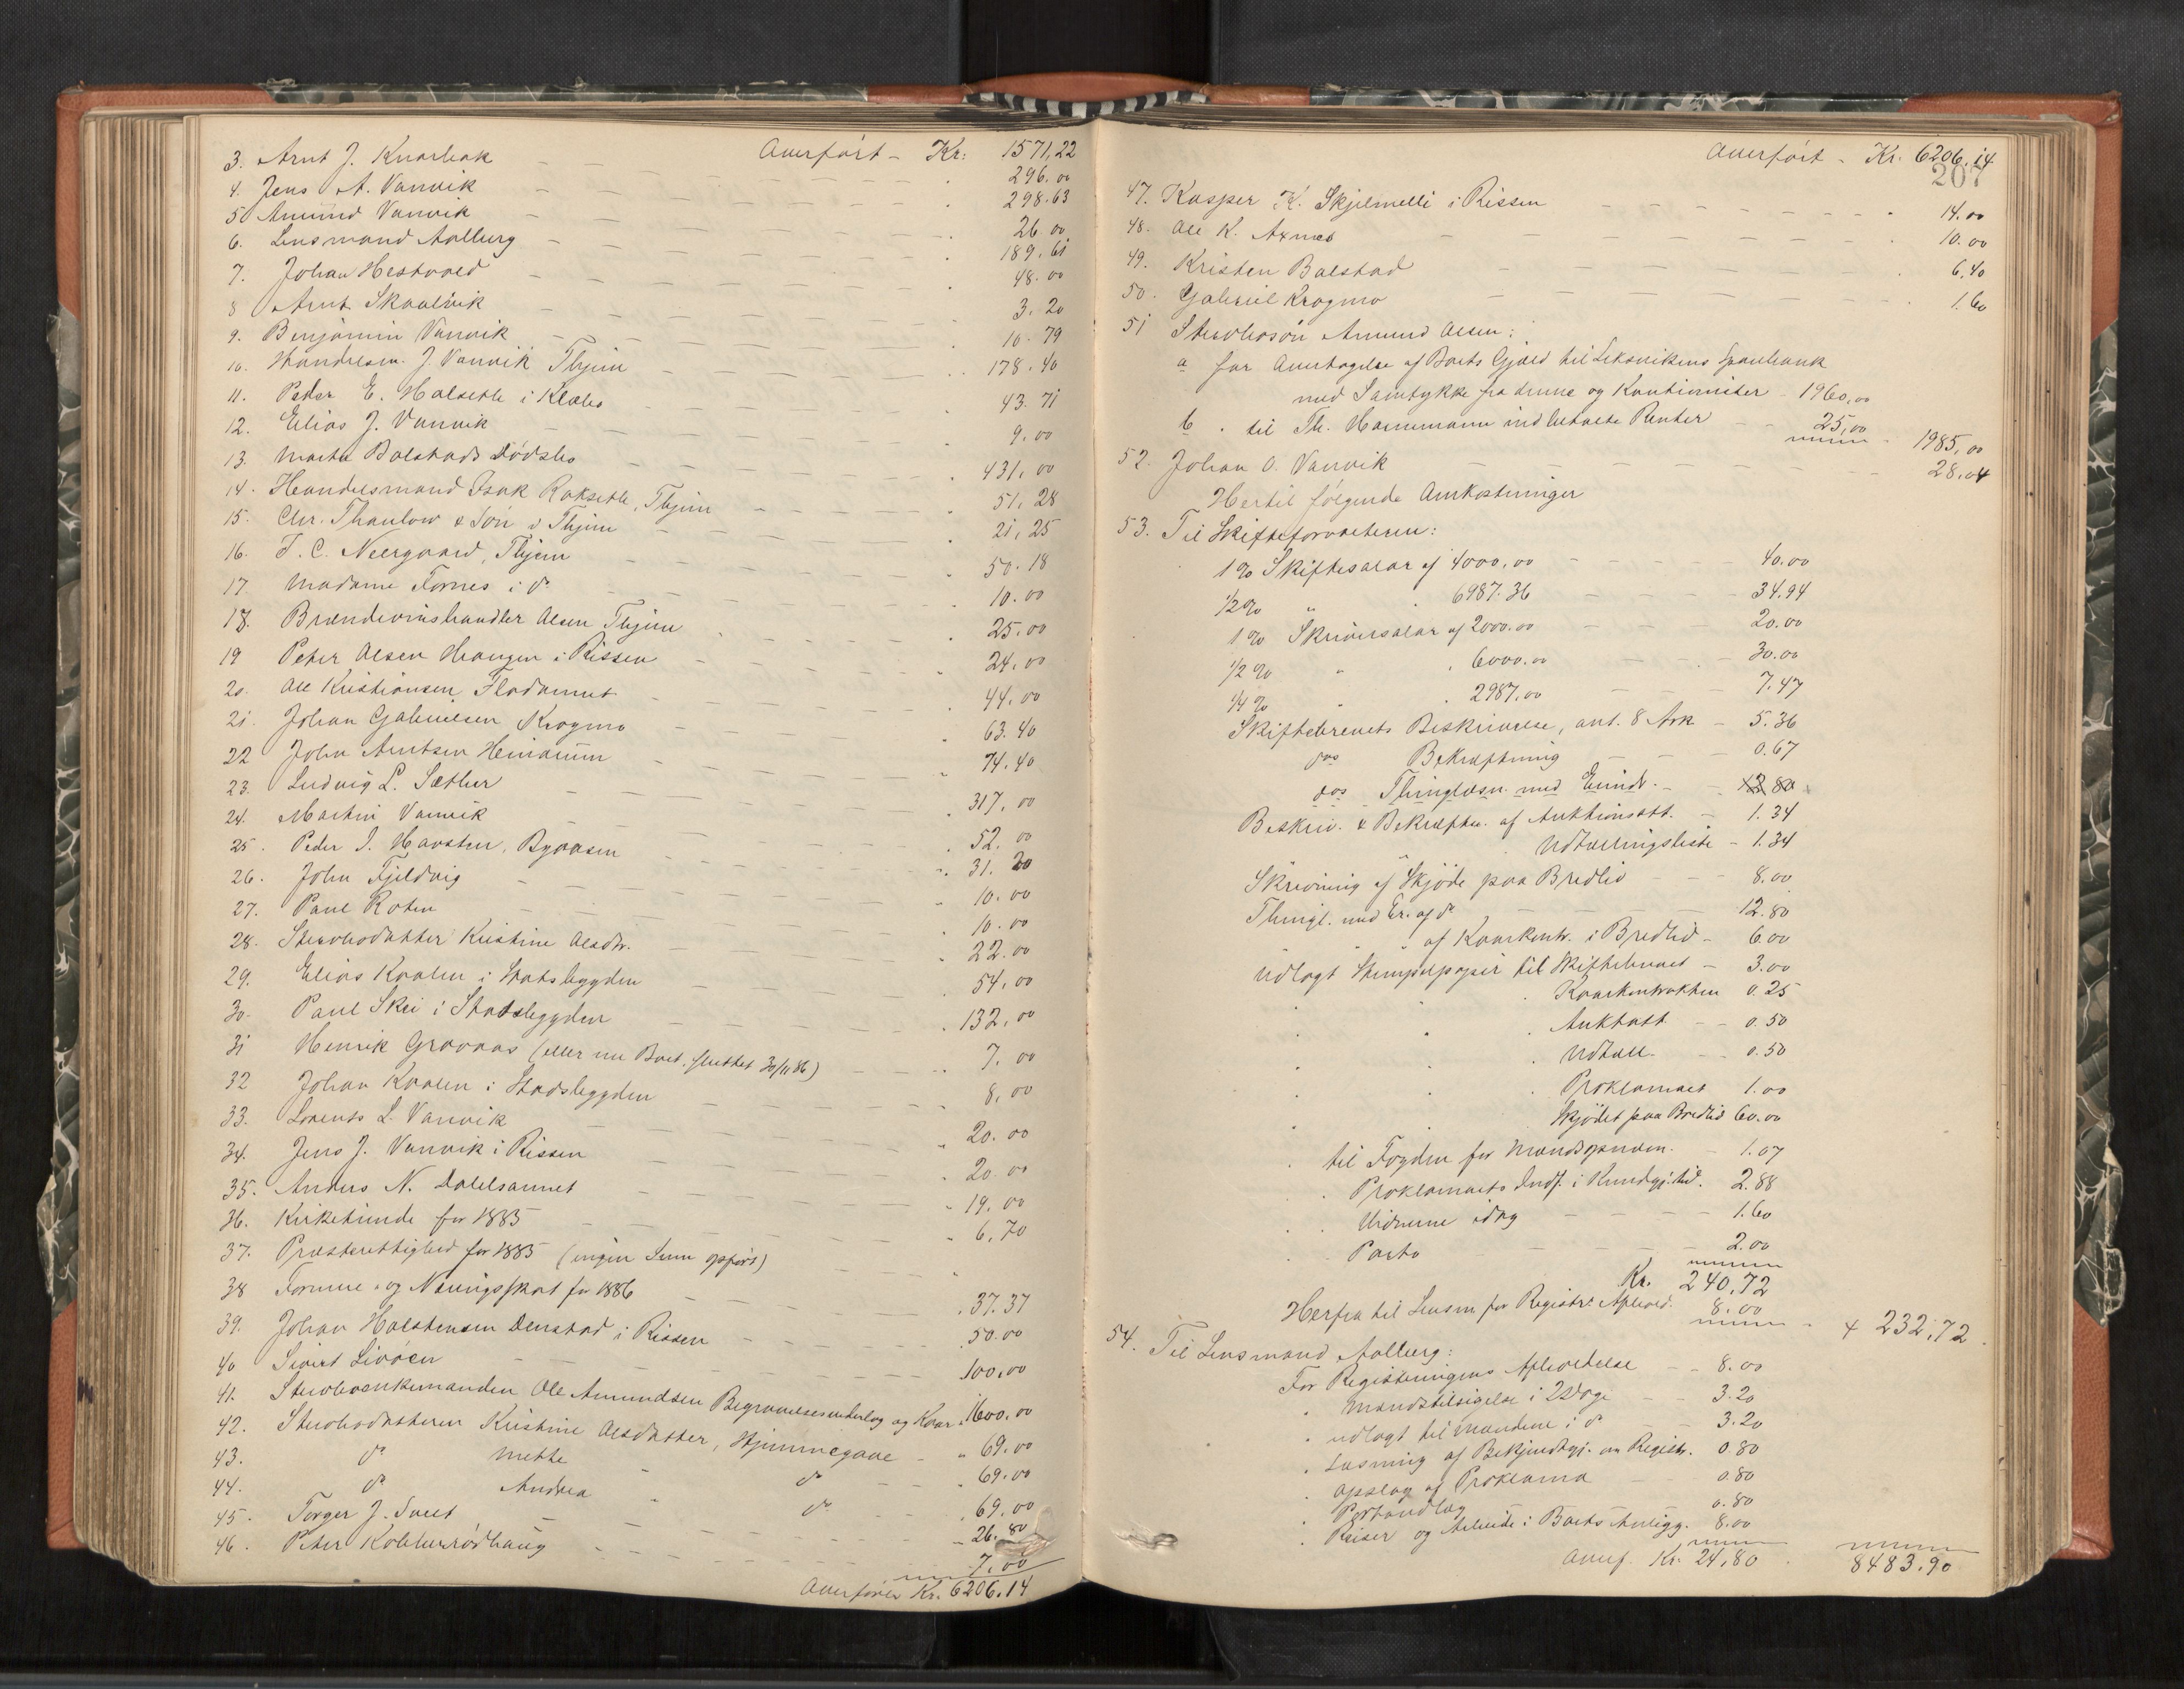 Overført - Kr. 1571,22
3. Arnt J. Kvarbak - - 296.00
4. Jens A. Vanvik - - 298.63
5 Amund Vanvik - - 26.00
6. Lensmand Aalberg - - 189.61
7. Johan Hestvold - - 48.00
8 Arnt Skaalvik - - 3.20
9. Benjamin Vanvik - - 10.79
10. Handelsm. J. Vanvik Thjem - - 178.40
11. Peder E. Halseth i Klæbo - - 43.71
12. Elias J. Vanvik - - 9.00
13. Marta Balstads Dødsbo - - 431,00
14. Handelsmand Isak Rokseth, Thjem - - 51,28
15. Chr. Thaulow & Søn i Thjem - - 21,25
16. I. C. Neergaard, Thjem - - 50.18
17 Madame Fornes i do - - 10.00
18. Brændevinshandler Olsen Thjem - - 25.00
19 Peter Olsen Haugen i Rissen - - 24,00
20. Ole Kristiansen Fladaunet - - 44.00
21. Johan Gabrielsen Krogmo - - 63.40
22 John Arntsen Heindrum - - 74.40
23. Ludvig L. Sæther - - 317,00
24. Martin Vanvik - - 52.00
25. Peder J. Havsten, Byaasen - - 31.20
26. John Fjeldvig - - 10.00
27. Paul Roten - - 10.00
28. Stervbodatter Kristine Olsdtr. - - 22.00
29. Elias Kvalen i Statsbygden - - 54,00
30. Paul Skei i Stadsbygden - - 132,00
31 Henrik Graaaas (eller nu Boet. sluttet 30/11 86) - - 7.00
32 Johan Kvalen i Stadsbygden - - 8,00
33. Lorents L. Vanvik - - 20.00
34. Jens J. Vanvik i Rissen - - 20.00
35. Anders N. Dalelsaunet - - 19.00
36. Kirketiende for 1885 - - 6,70
37. Præsterettighed for 1885 (ingen Sum opført)
38 Formue- og Næringsskat for 1886 - - 37.37
39. Johan Halstensen Denstad i Rissen - - 50.00
40 Sivert Livoen - - 100,00
41. Stervboenkemanden Ole Amundsen Begravelsesudlæg og Kaar 1600.00
42. Stervbodatteren Kristine Olsdatter, Hjemmegave - 69.00
43. do Mette do - 69.00
44. do Andrea - do - 69.00
45. Torger J. Sveet - - 26.80
46. Peter Kobberrødhaug - - 7.00
Overføres Kr. 6206.14
Overført - Kr. 6206.14
207
47. Kasper K. Skjelmelli i Rissen - - 14.00
48. Ole K. Axnes - - 10.00
49. Kristen Balstad - - 6.40
50. Gabriel Krogmo - - 1.60
51 Stervbosøn Amund Olsen:
a for Overtagelse af Boets Gjæld til Leksvikens Sparebank
med Samtykke fra denne og Kautionister - 1960,00
b " til Th. Hannemann indbetalte Renter - 25,00 - 1985,00
52. Johan O. Vanvik - - 28.04
Hertil følgende Omkostninger
53. Til Skifteforvalteren:
1% Skiftesalær af 4000,00 - - 40.00
1/2% " " 6987.36 - - 34.94
1% Skriversalær af 2000.00 - - 20.00
1/2% " " 6000.00 - - 30.00
1/4% " " 2987,00 - - 7.47
Skiftebrevets Beskrivelse, ant. 8 Ark - 5.36
dos Bekræftning - - 0.67
dos Thinglæsn. med Eiend. -
Beskriv. & Bekræftn. af Auktionsatt. - 1.34
" Udtællingsliste - 1.34
Skrivning af Skjøde paa Bredlid - - 8.00
Thingl. med Er. af do - - 12.80
" " af Kaarkontr. i Bredlid - 6.00
Udlagt Stempelpapir til Skiftebrevet - 3.00
" " Kaarkontrakten 0.25
" " Auktatt. - - 0.50
" " Udtæll. - - 0.50
" " Proklamaet 1.00
" " Skjødet paa Bredlid 60.00
" til Fogden for Mandsopnævn. - 1.07
" " Proklamaets Indf. i Kundgj.tid. 2.88
" " Vidnerne idag - - 1.60
" Porto - - 2.00
Kr. 240,72
Herfra til Lensm for Registr. Afhold. 8.00 - + 232,72
54. Til Lensmand Aalberg:
For Registreringens Afholdelse - - 8.00
" Mandstilsigelse i 2 Dage - - 3.20
" udlagt til Mændene i do - - 3.20
" Læsning af Bekjendtgj. om Registr. 0.80
" Opslag af Proklama - - 0.80
" Perbudlæg 0.80
" Reiser og Arbeide i Boets Anligg. 8.00
Overf. Kr. 24,80 . 8483.90